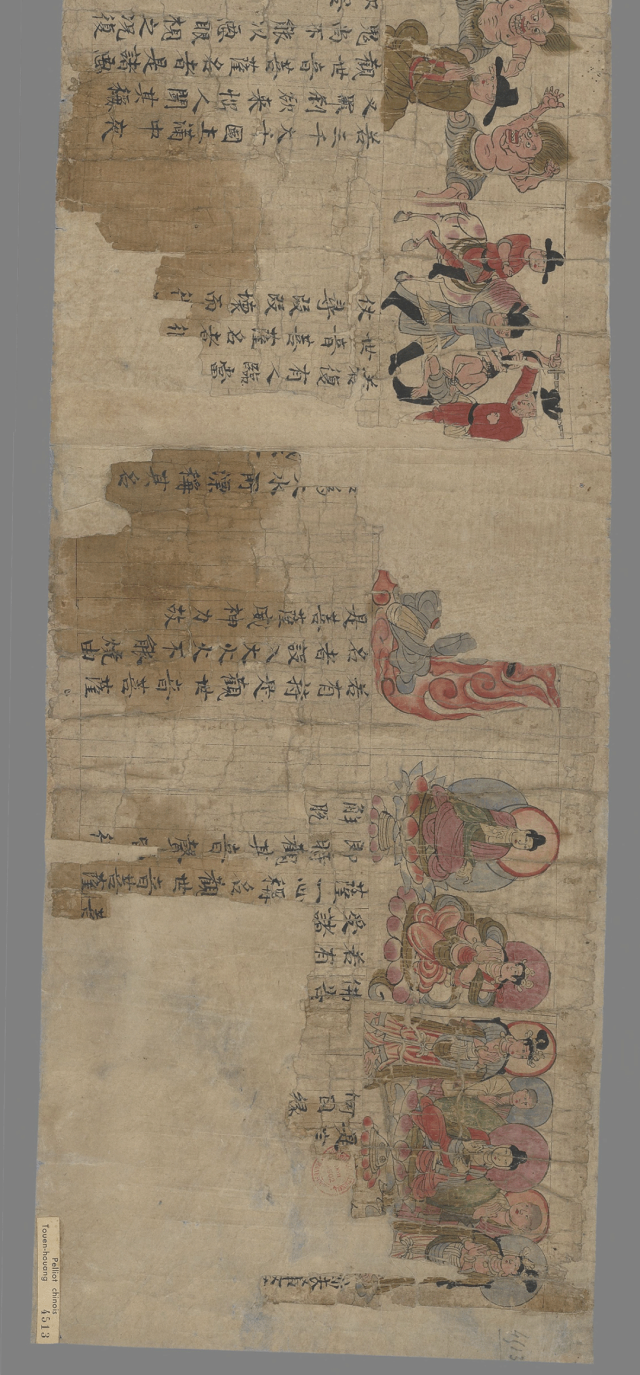 何因緣
佛告
若有
受諸
薩一心稱名觀世音菩薩
即時觀其音聲
解脫
若有持是觀世音菩薩
名者設入大火火不能燒由
是菩薩威神力故
水所漂稱其名
若復有人臨當
世音菩薩名者彼
仗尋段段壞而
若三千大千國土滿中夜
叉羅剎欲來惱人聞其稱
觀世音菩薩名者是諸惡
鬼尚不能以惡眼視之況復
Pelliot chinois
Touen-houang
4513
4513